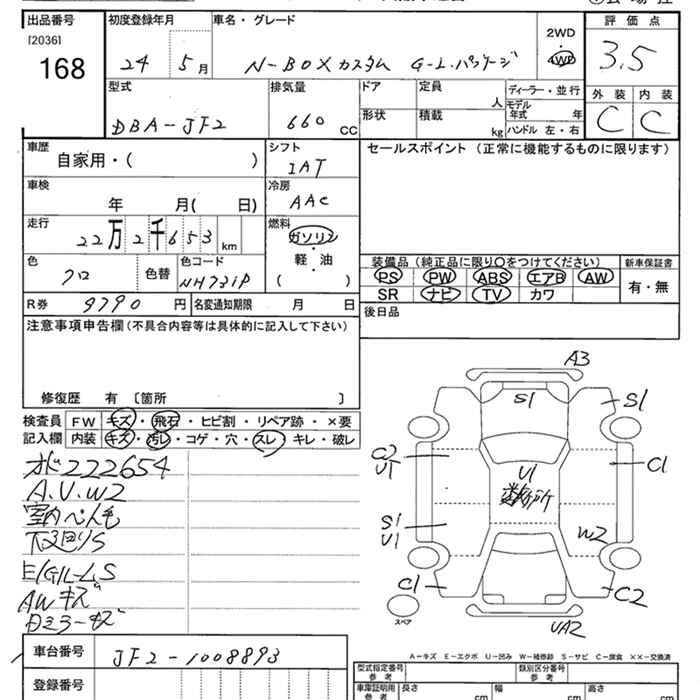 出品番号 初度登録年月 車名・グレード 評価点
[2036]
168
24 5月 N-BOXカスタム G-L.パッケージ 2WD・4WD 3.5
型式 排気量 ドア 定員 人 ディーラー・並行 外装 内装
DBA-JF2 660CC 形状 積載 kg モデル年式 年 ハンドル 左・右 C C
車歴 自家用・( ) シフト IAT セールスポイント (正常に機能するものに限ります)
車検 年 月( 日) 冷房 AAC
走行 22万2千653km 燃料 ガソリン・軽・油 ( )
色 クロ 色替 色コード NH731P
装備品(純正品に限り○をつけてください) 新車保証書
PS PW ABS エアB AW 有・無
SR ナビ TV カワ
R券 9790円 名変通知期限 月 日 後日品
注意事項申告欄(不具合内容等は具体的に記入して下さい)
修復歴 有 〔箇所 〕
検査員 FW キズ・飛石・ヒビ割・リペア跡・×要
記入欄 内装 キズ・汚レ・コゲ・穴・スレ・キレ・破レ
オド222654
A.U.W2
下廻りS
AWキズ
A3
S1 S1
C2
U1 C1
U1
S1
U1 W2
C1 C2
スペア UA2
A-キズ E-エクボ U-凹み W-補修跡 S-サビ C-腐食 ××-交換済
車台番号 JF2-1008893
型式指定番号 参考 類別区分番号 参考
登録番号 車庫証明用 参考 長さ cm 幅 cm 高さ cm